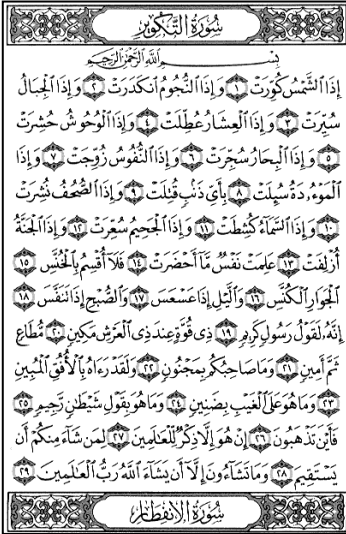 سُورَةُ التَّكْوِيرِ
بِسْمِ اللَّهِ الرَّحْمَٰنِ الرَّحِيمِ
إِذَا ٱلشَّمْسُ كُوِّرَتْ ١ وَإِذَا ٱلنُّجُومُ ٱنكَدَرَتْ ٢ وَإِذَا ٱلْجِبَالُ
سُيِّرَتْ ٣ وَإِذَا ٱلْعِشَارُ عُطِّلَتْ ٤ وَإِذَا ٱلْوُحُوشُ حُشِرَتْ
٥ وَإِذَا ٱلْبِحَارُ سُجِّرَتْ ٦ وَإِذَا ٱلنُّفُوسُ زُوِّجَتْ ٧ وَإِذَا
ٱلْمَوْءُۥدَةُ سُئِلَتْ ٨ بِأَيِّ ذَنۢبٍ قُتِلَتْ ٩ وَإِذَا ٱلصُّحُفُ نُشِرَتْ
١٠ وَإِذَا ٱلسَّمَآءُ كُشِطَتْ ١١ وَإِذَا ٱلْجَحِيمُ سُعِّرَتْ ١٢ وَإِذَا ٱلْجَنَّةُ
أُزْلِفَتْ ١٣ عَلِمَتْ نَفْسٌ مَّآ أَحْضَرَتْ ١٤ فَلَآ أُقْسِمُ بِٱلْخُنَّسِ ١٥
ٱلْجَوَارِ ٱلْكُنَّسِ ١٦ وَٱلَّيْلِ إِذَا عَسْعَسَ ١٧ وَٱلصُّبْحِ إِذَا تَنَفَّسَ ١٨
إِنَّهُۥ لَقَوْلُ رَسُولٍ كَرِيمٍ ١٩ ذِى قُوَّةٍ عِندَ ذِى ٱلْعَرْشِ مَكِينٍ ٢٠ مُّطَاعٍ
ثَمَّ أَمِينٍ ٢١ وَمَا صَاحِبُكُم بِمَجْنُونٍ ٢٢ وَلَقَدْ رَءَاهُ بِٱلْأُفُقِ ٱلْمُبِينِ
٢٣ وَمَا هُوَ عَلَى ٱلْغَيْبِ بِضَنِينٍ ٢٤ وَمَا هُوَ بِقَوْلِ شَيْطَٰنٍ رَّجِيمٍ ٢٥
فَأَيْنَ تَذْهَبُونَ ٢٦ إِنْ هُوَ إِلَّا ذِكْرٌ لِّلْعَٰلَمِينَ ٢٧ لِمَن شَآءَ مِنكُمْ أَن
يَسْتَقِيمَ ٢٨ وَمَا تَشَآءُونَ إِلَّآ أَن يَشَآءَ ٱللَّهُ رَبُّ ٱلْعَٰلَمِينَ ٢٩
سُورَةُ الِانفِطَارِ